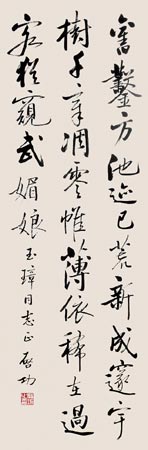 舊鑿方池迹已荒新成邃宇
樹千章凋零帷薄依稀在過
客猶窺武媚娘 玉璋同志正 啓功